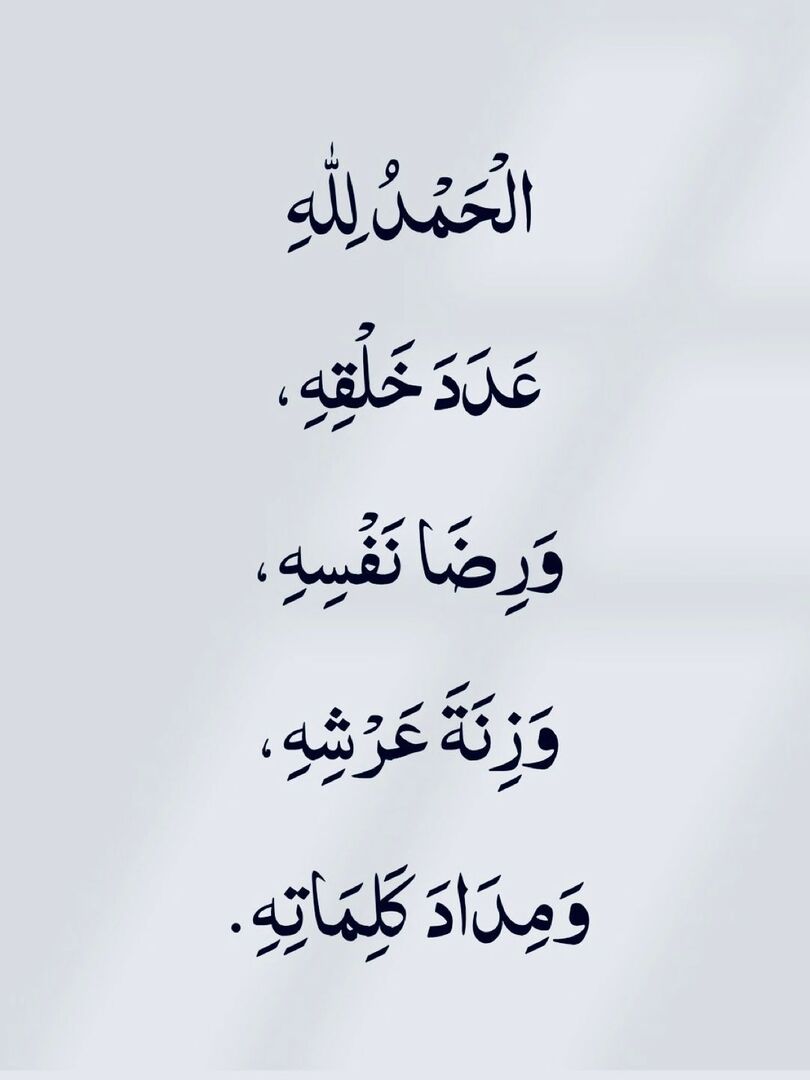 الْحَمْدُ لِلّٰهِ
عَدَدَ خَلْقِهِ ،
وَرِضَا نَفْسِهِ ،
وَزِنَةَ عَرْشِهِ ،
وَمِدَادَ كَلِمَاتِهِ .